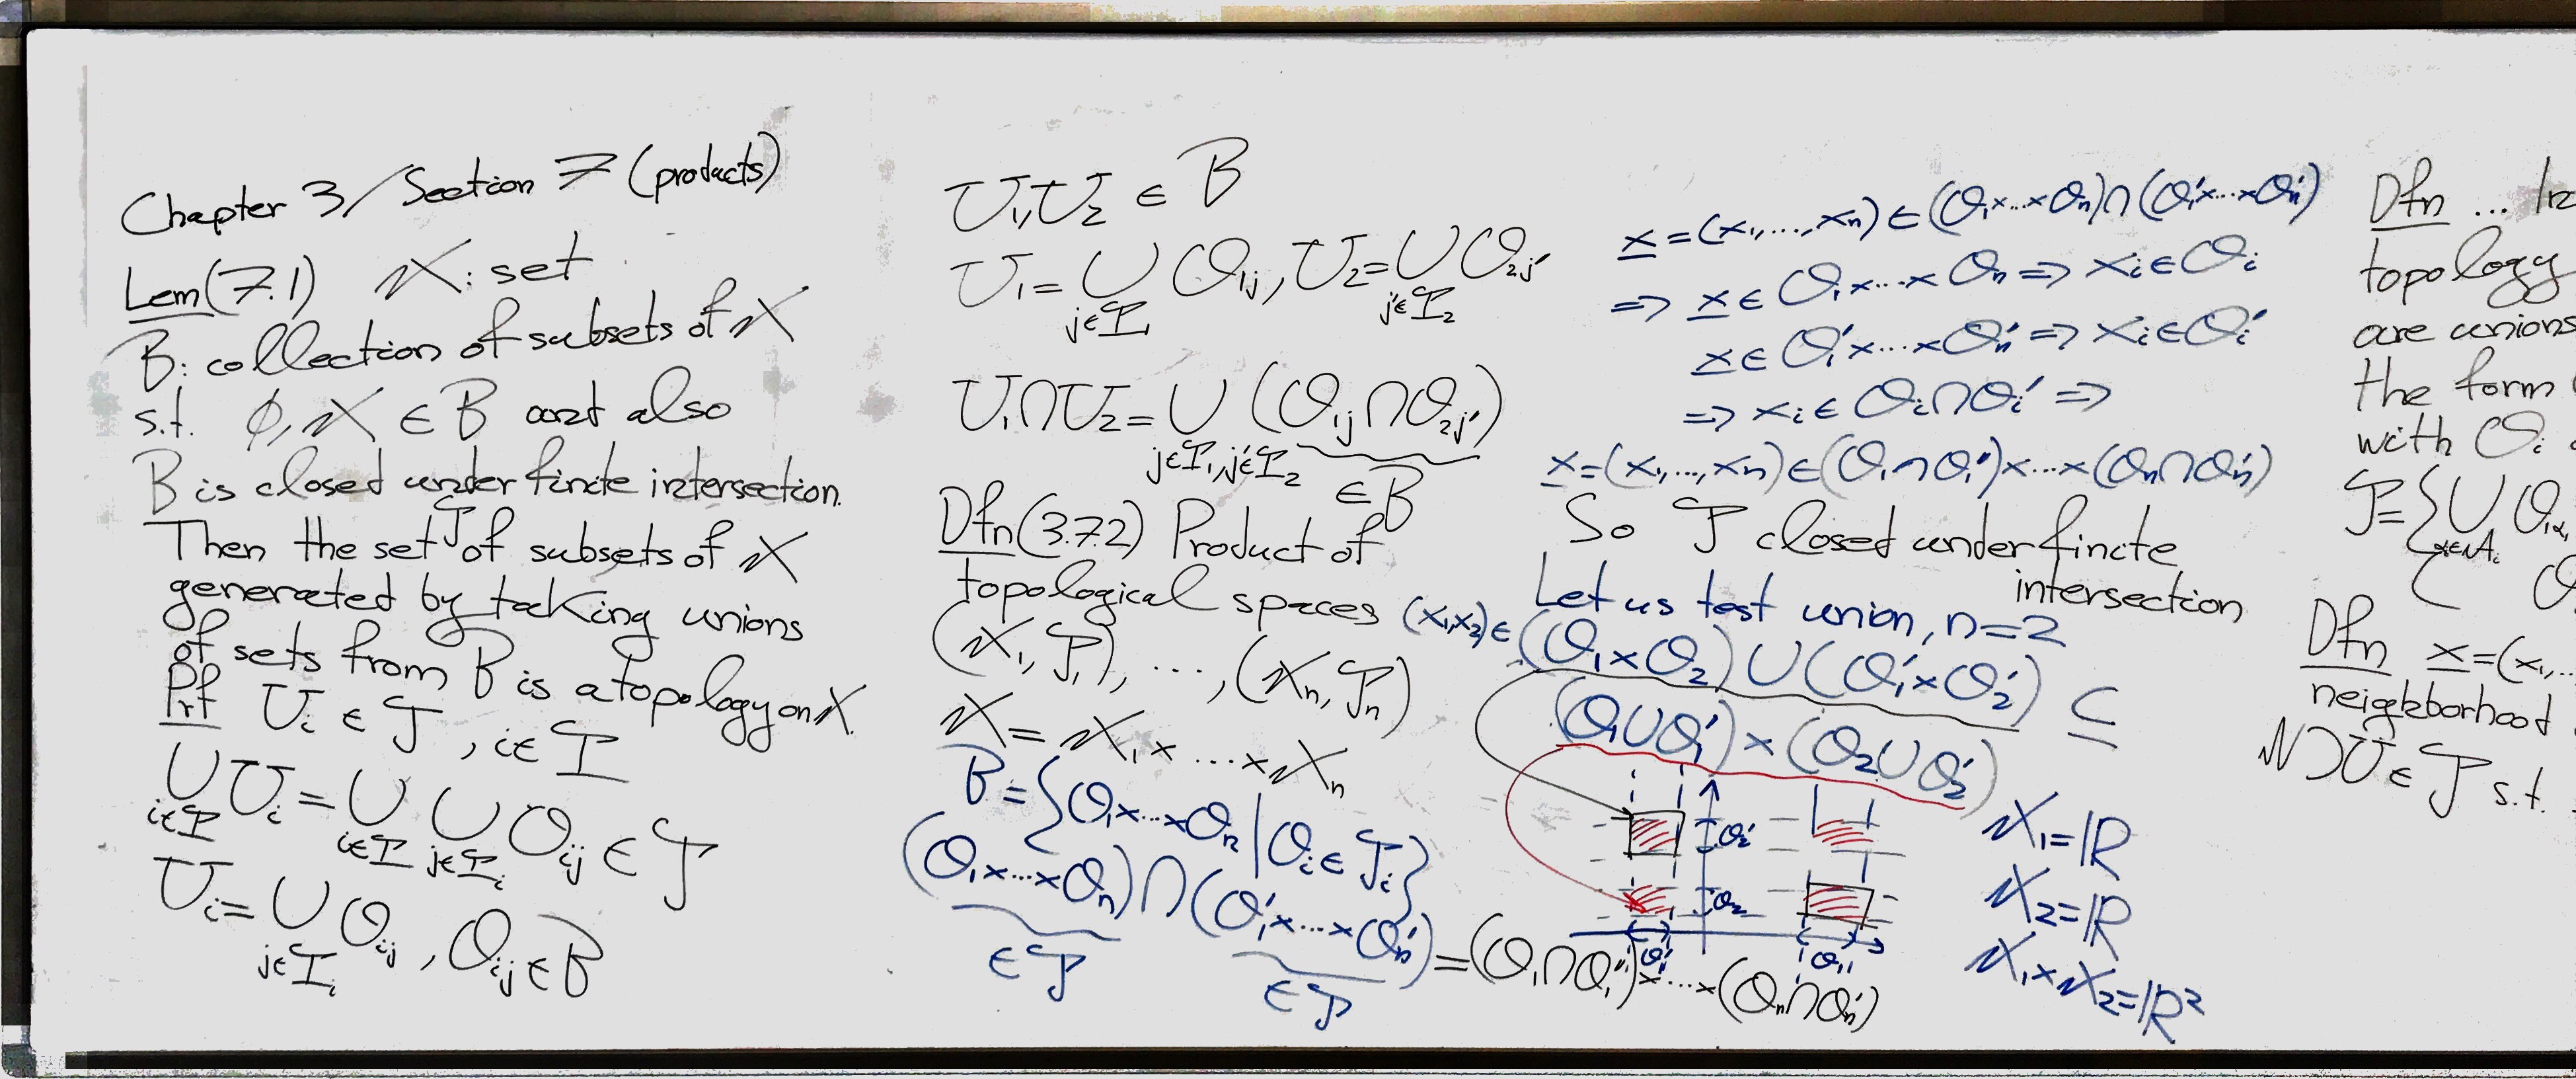 Chapter 3/Section 7 (products)
Lem(7.1) X: set
B: collection of subsets of X
s.t. ∅, X ∈ B and also
B is closed under finite intersection.
Then the set 𝒯 of subsets of X
generated by taking unions
of sets from B is a topology on X.
Prf U_i ∈ 𝒯, i∈I
⋃_{i∈I} U_i = ⋃_{i∈I} ⋃_{j∈I_i} O_{ij} ∈ 𝒯
U_i = ⋃_{j∈I_i} O_{ij}, O_{ij} ∈ B
U_1, U_2 ∈ B
U_1 = ⋃_{j∈I_1} O_{1j}, U_2 = ⋃_{j'∈I_2} O_{2j'}
U_1∩U_2 = ⋃_{j∈I_1, j'∈I_2} (O_{1j}∩O_{2j'})
∈B
Dfn(3.7.2) Product of
topological spaces
(X_1, 𝒯_1), ..., (X_n, 𝒯_n)
X = X_1×...×X_n
B = {O_1×...×O_n | O_i ∈ 𝒯_i}
(O_1×...×O_n)∩(O_1'×...×O_n') = (O_1∩O_1')×...×(O_n∩O_n')
∈𝒯 ∈𝒯
x=(x_1,...,x_n)∈(O_1×...×O_n)∩(O_1'×...×O_n')
⇒ x∈O_1×...×O_n ⇒ x_i∈O_i
x∈O_1'×...×O_n' ⇒ x_i∈O_i'
⇒ x_i∈O_i∩O_i' ⇒
x=(x_1,...,x_n)∈(O_1∩O_1')×...×(O_n∩O_n')
So 𝒯 closed under finite
intersection
Let us test union, n=2
(x_1,x_2)∈(O_1×O_2)∪(O_1'×O_2') ⊆
(O_1∪O_1')×(O_2∪O_2')
O_2'
O_2
O_1' O_1
X_1=ℝ
X_2=ℝ
X_1×X_2=ℝ²
Dfn ... In
topology
are unions
the form
with O_i
𝒯={⋃_{α∈A} O_{1α},
Dfn x=(x_1,...
neighborhood
N⊃U∈𝒯 s.t.